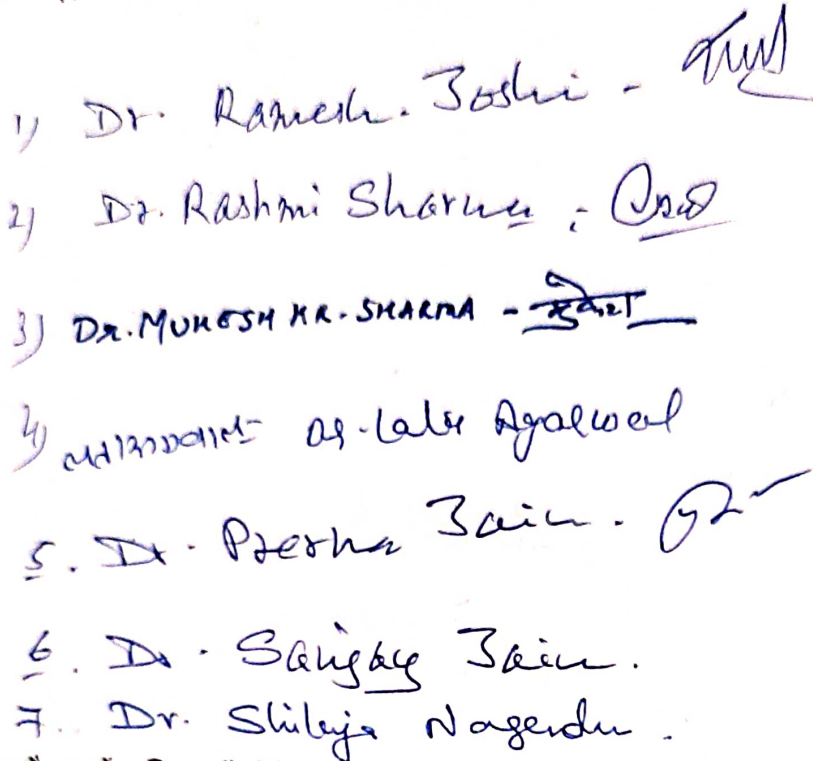 1) Dr. Ramesh. Joshi -
2) Dr. Rashmi Sharma -
3) DR. MUKESH KR. SHARMA - मुकेश
4) Dr. Lata Agarwal
5. Dr. Prerna Jain.
6. Dr. Sanjay Jain.
7. Dr. Shilpja Nagendra.